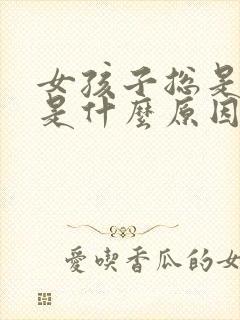 女孩子总是
是什麼原因
愛喫香瓜的女